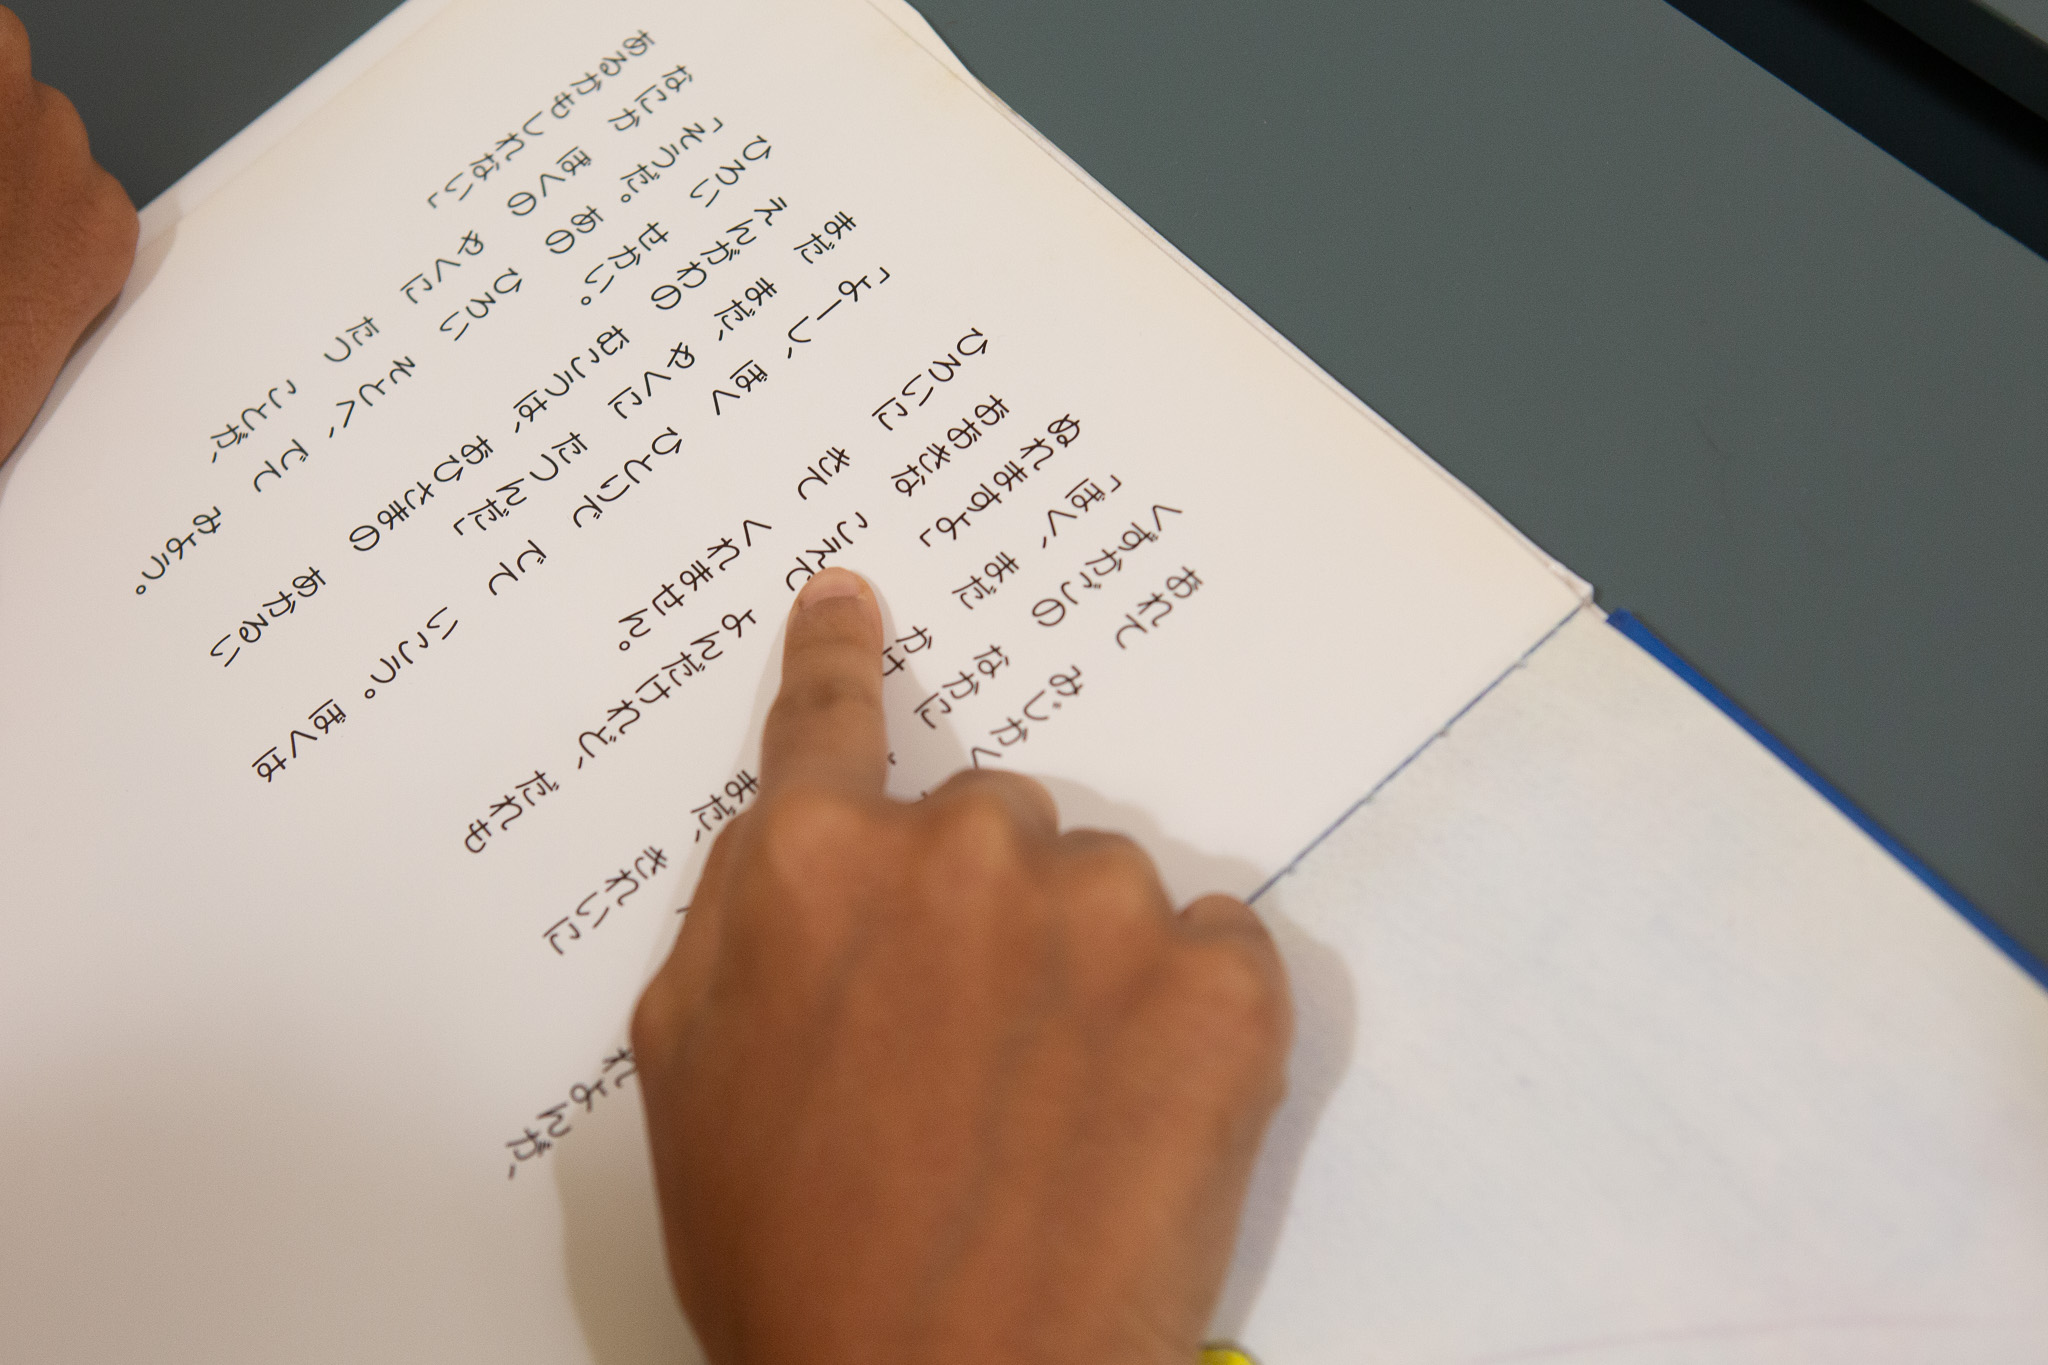 おれて みじかく れよんが、
くずかごの なかに
「ぼく、まだ かけ まだ、 きれいに
ぬれますよ」
おおきな こえで よんだけれど、 だれも
ひろいに きて くれません。
「よーし、ぼく ひとりで でて いこう。 ぼくは
まだ まだ、 やくに たつんだ」
えんがわの むこうは、 おひさまの あかるい
ひろい せかい。
「そうだ。 あの ひろい そとへ、 でて みよう。
なにか ぼくの やくに たつ ことが、
あるかもしれない」